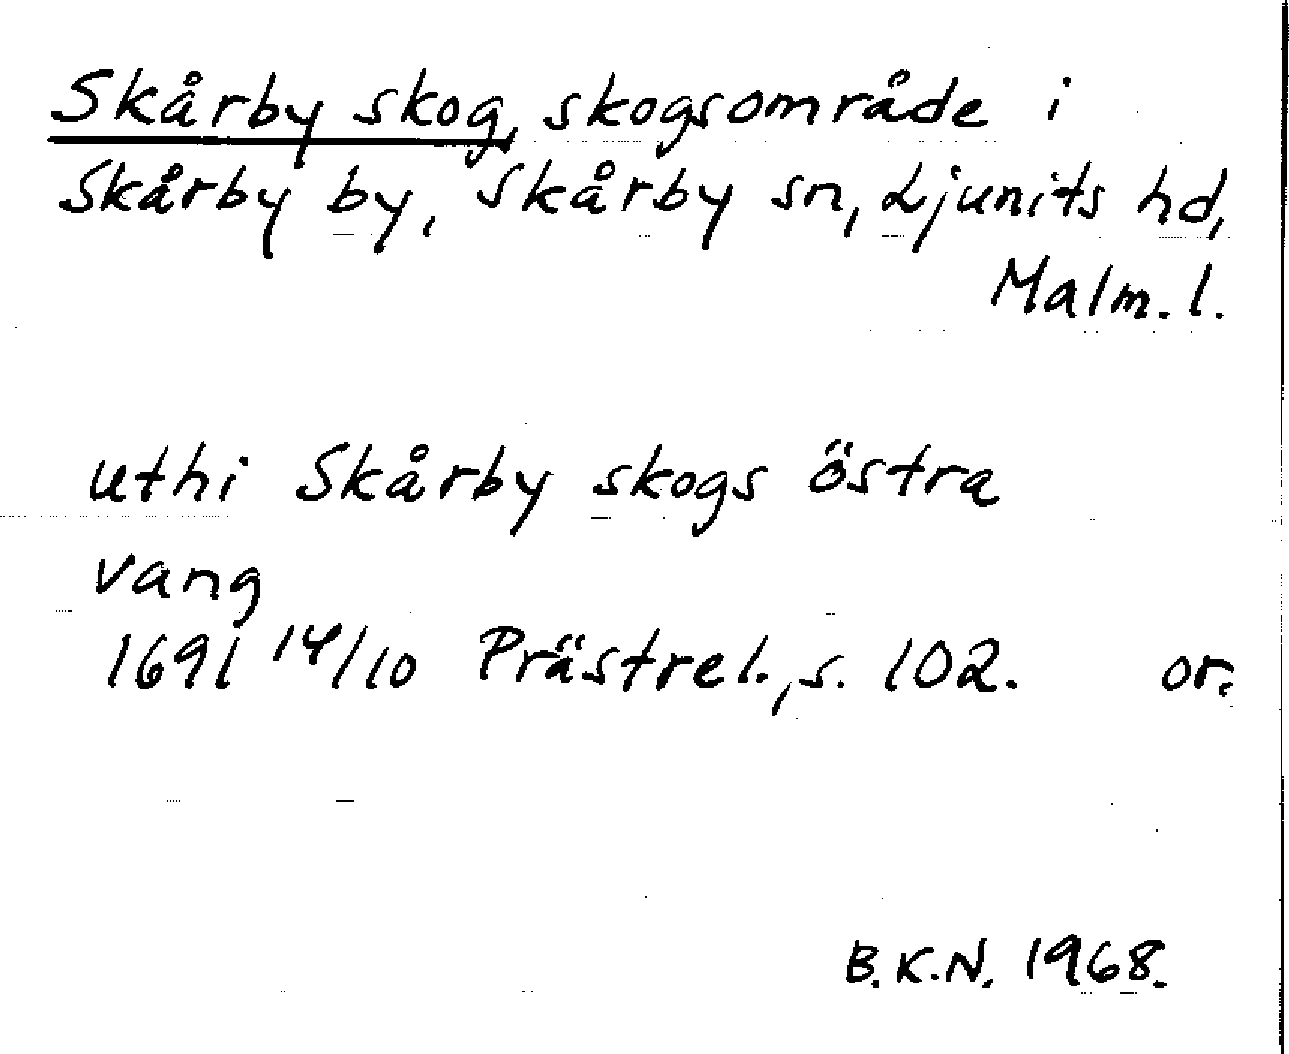 Skårby skog, skogsområde i
Skårby by, Skårby sn, Ljunits hd,
Malm. l.
uthi Skårby skogs östra
vang
1691 14/10 Prästrel., s. 102. or.
B.K.N. 1968.